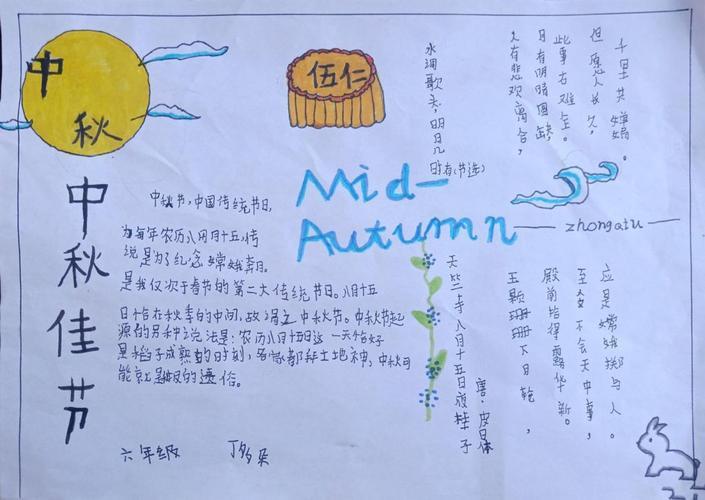 中秋
伍仁
中秋佳节
中秋节,中国传统节日,
为每年农历八月十五,传
说是为了纪念嫦娥奔月。
是我仅次于春节的第二大传统节日。八月十五
日恰在秋季的中间,故谓之中秋节。中秋节起
源的另种说法是:农历八月十五日这一天恰好
是稻子成熟的时刻,各家都拜土地神,中秋可
能就是的遗俗。
六年级
Mid-
Autumn
zhongqiu
水调歌头,明月几
时有(节选)
人有悲欢离合,
月有阴晴圆缺,
此事古难全。
但愿人长久,
千里共婵娟。
天竺寺八月十五日夜桂子
唐·皮日休
玉颗珊珊下月轮,
殿前拾得露华新。
至今不会天中事,
应是嫦娥掷与人。